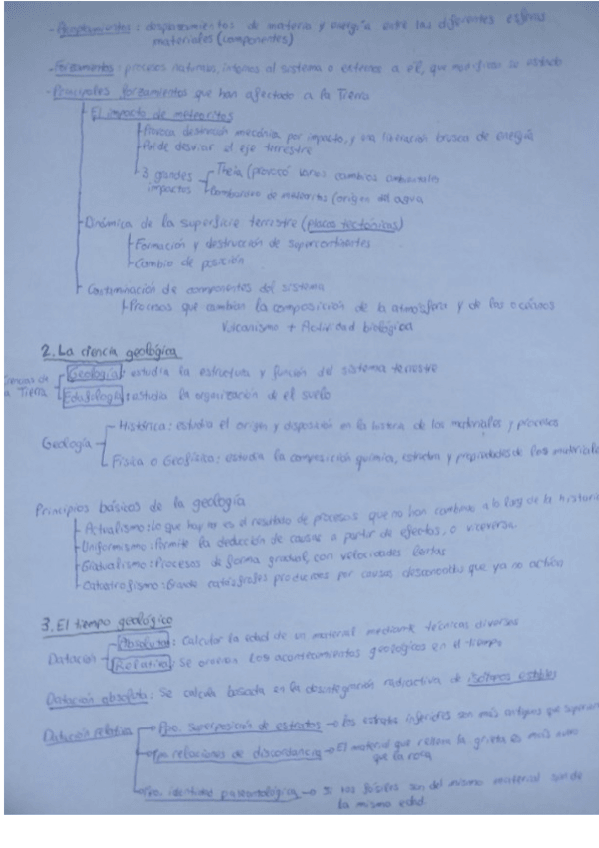 : desplazamientos de materia y energía entre las diferentes esferas
materiales (componentes)
- Forzamientos: procesos naturales, internos al sistema o externos a él, que modifican su estado
- Principales forzamientos que han afectado a la Tierra
El impacto de meteoritos
Provoca destrucción mecánica por impacto, y una liberación brusca de energía
Puede desviar el eje terrestre
3 grandes impactos
Theia (provocó varios cambios ambientales
Bombardeo de meteoritos (origen del agua
Dinámica de la superficie terrestre (placas tectónicas)
Formación y destrucción de supercontinentes
Cambio de posición
Contaminación de componentes del sistema
Procesos que cambian la composición de la atmósfera y de los océanos
Vulcanismo + Actividad biológica
2. La ciencia geológica
Ciencias de la Tierra
Geología: estudia la estructura y función del sistema terrestre
Edafología: estudia la organización de el suelo
Geología
Histórica: estudia el origen y disposición en la historia de los materiales y procesos
Física o Geofísica: estudia la composición química, estructura y propiedades de los materiales
Principios básicos de la geología
Actualismo: lo que hay es el resultado de procesos que no han cambiado a lo largo de la historia
Uniformismo: Permite la deducción de causas a partir de efectos, o viceversa
Gradualismo: Procesos de forma gradual, con velocidades lentas
Catastrofismo: Grandes catástrofes producidas por causas desconocidas que ya no actúan
3. El tiempo geológico
Datación
Absoluta: Calcular la edad de un material mediante técnicas diversas
Relativa: Se ordenan los acontecimientos geológicos en el tiempo
Datación absoluta: Se calcula basada en la desintegración radiactiva de isótopos estables
Datación relativa
Ppo. superposición de estratos → los estratos inferiores son más antiguos que superiores
Ppo relaciones de discordancia → El material que rellena la grieta es más nuevo
que la roca
Ppo. identidad paleontológica → Si los fósiles son del mismo material son de
la misma edad